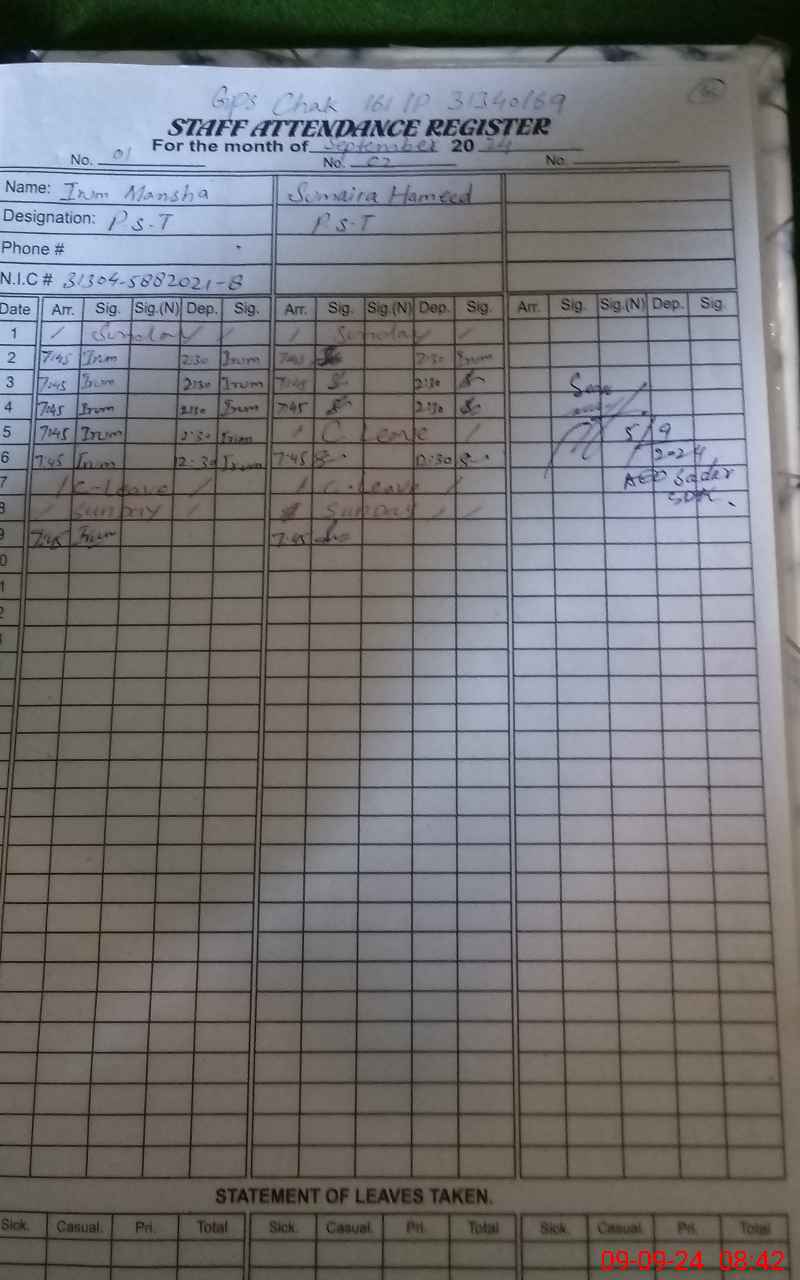 GPS Chak 161 1P 31340169
STAFF ATTENDANCE REGISTER
For the month of September 20 24
No. 01 No. 02 No.
Name: Irum Mansha Sumaira Hameed
Designation: P S-T P S-T
Phone #
N.I.C # 31304-5882021-8
Date Arr. Sig. Sig.(N) Dep. Sig. Arr. Sig. Sig.(N) Dep. Sig. Arr. Sig. Sig.(N) Dep. Sig.
1 / Sunday / / Sunday /
2 7:45 Irum 2:30 Irum 7:45 2:30 Irum
3 7:45 Irum 2:30 Irum 7:45 2:30
4 7:45 Irum 2:30 Irum 7:45 2:30
5 7:45 Irum 2:30 Irum / C. Leave / 5/9
6 7:45 Irum 12:30 Irum 7:45 12:30 2024
7 / C-Leave / / C-Leave / AEO Sadar
8 / SUNDAY / SUNDAY / / SDK.
9 7:45 Irum 7:45
0
1
2
STATEMENT OF LEAVES TAKEN.
Sick. Casual. Pri. Total Sick. Casual. Pri. Total Sick. Casual. Pri. Total
09-09-24 08:42